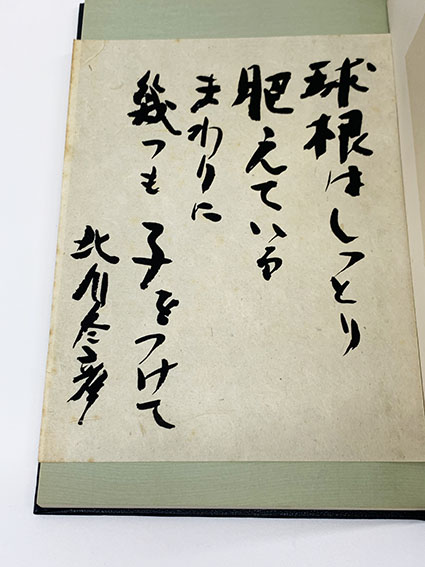 球根はしっとり
肥えている
まわりに
幾つも 子をつけて
北川冬彦